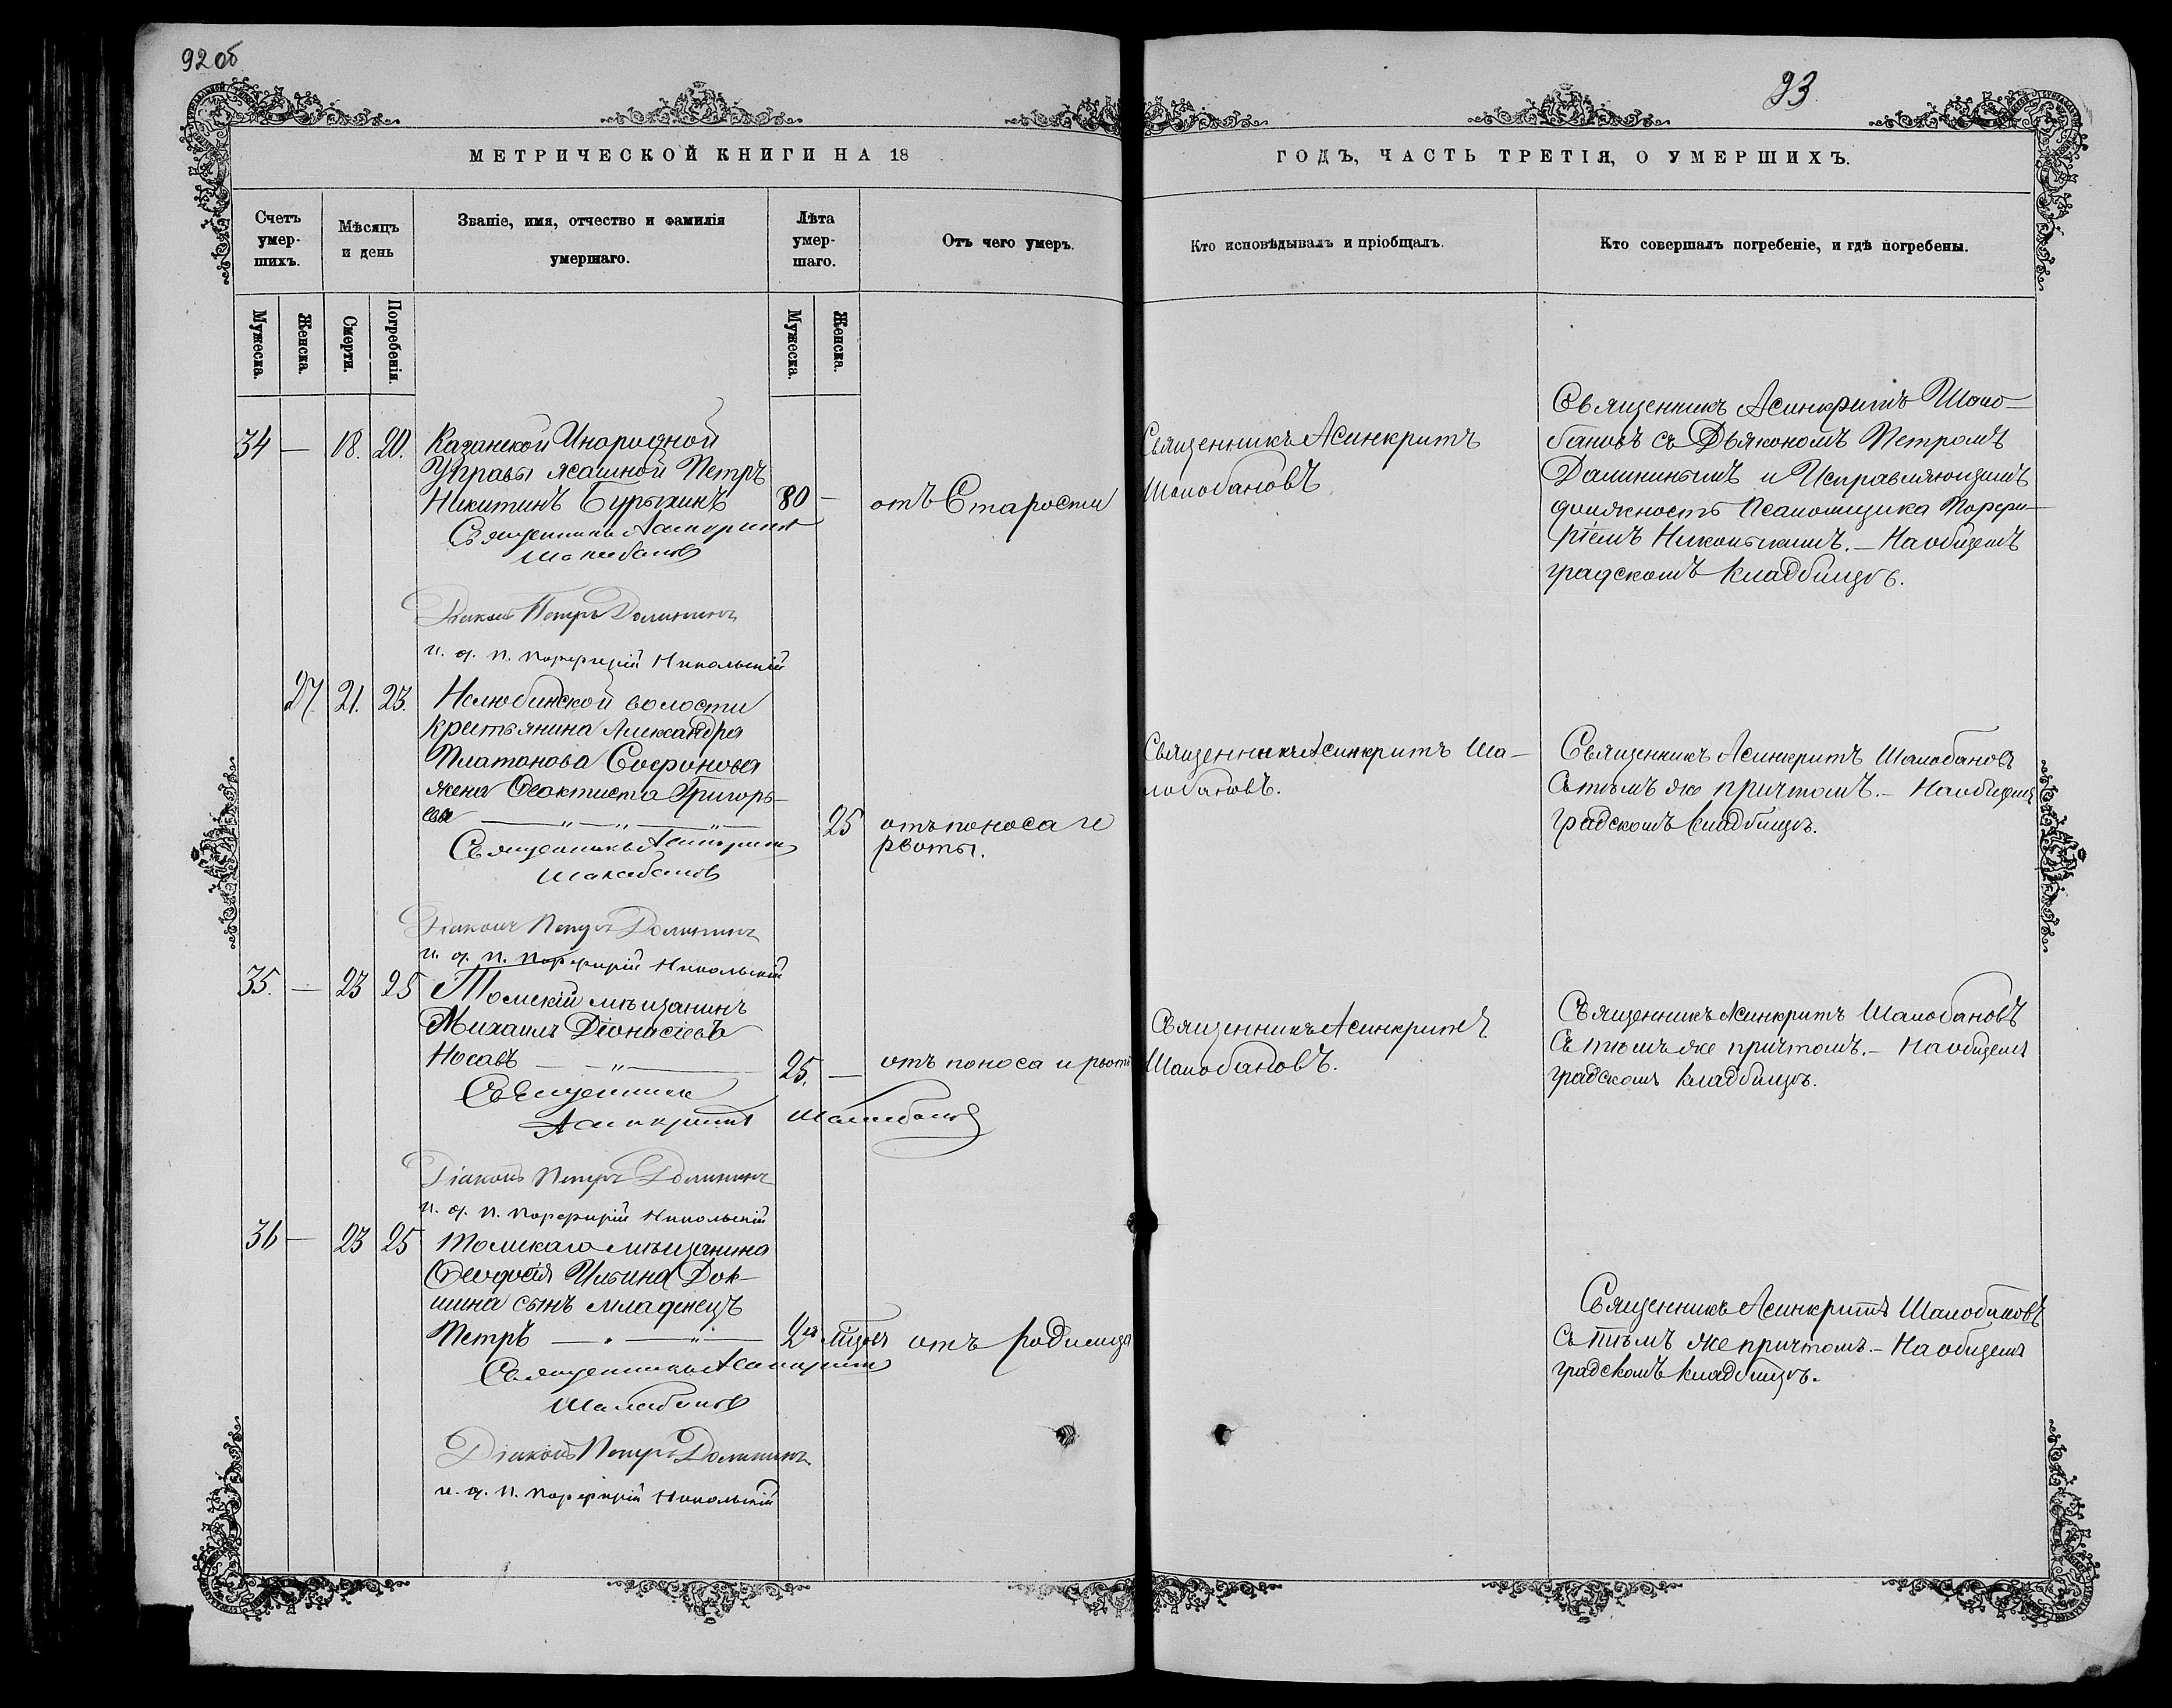 92 об
93
МЕТРИЧЕСКОЙ КНИГИ НА 18
ГОДЪ, ЧАСТЬ ТРЕТІЯ, О УМЕРШИХЪ.
Счетъ умер-
шихъ.
Мѣсяцъ
и день
Званіе, имя, отчество и фамилія
умершаго.
Лѣта
умер-
шаго.
Отъ чего умеръ.
Кто исповѣдывалъ и пріобщалъ.
Кто совершалъ погребеніе, и гдѣ погребены.
Мужеска.
Женска.
Смерти.
Погребенія.
Мужеска.
Женска.
34 — 18. 20.
Казанской Инородной
Управы ясашной Петръ
Никитинъ Бурыхинъ 80 —
отъ Старости
Священникъ Асинкритъ
Шалобановъ
Діаконъ Петръ Долининъ
и. д. п. Порфирій Никольскій
Священникъ Асинкритъ
Шалобановъ
Священникъ Асинкритъ Шало-
бановъ съ Дьякономъ Петромъ
Далининымъ и Исправляющимъ
должность Псаломщика Порфи-
ріемъ Никольскимъ. — На общемъ
градскомъ кладбищѣ.
27 21. 23.
Нелюбинской волости
крестьянина Александра
Платонова Софонова
жена Феоктиста Григорь-
ева 25
отъ поноса и
рвоты.
Священникъ Асинкритъ
Шалобановъ
Діаконъ Петръ Долининъ
и. д. п. Порфирій Никольскій
Священникъ Асинкритъ Ша-
лобановъ.
Священникъ Асинкритъ Шалобановъ
съ тѣмъ же причтомъ. — На общемъ
градскомъ кладбищѣ.
35. — 23 25
Томскій мѣщанинъ
Михаилъ Діонисіевъ
Носавъ 25. —
отъ поноса и рвоты
Священникъ
Асинкритъ Шалобановъ
Діаконъ Петръ Долининъ
и. д. п. Порфирій Никольскій
Священникъ Асинкритъ
Шалобановъ.
Священникъ Асинкритъ Шалобановъ
съ тѣмъ же причтомъ. — На общемъ
градскомъ кладбищѣ.
36 — 23 25
Томскаго мѣщанина
Феодосія Ильина Док-
шина сынъ младенецъ
Петръ 2хъ мѣсяц
отъ родимца
Священникъ Асинкритъ
Шалобановъ
Діаконъ Петръ Долининъ
и. д. п. Порфирій Никольскій
Священникъ Асинкритъ Шалобановъ
съ тѣмъ же причтомъ. — На общемъ
градскомъ кладбищѣ.